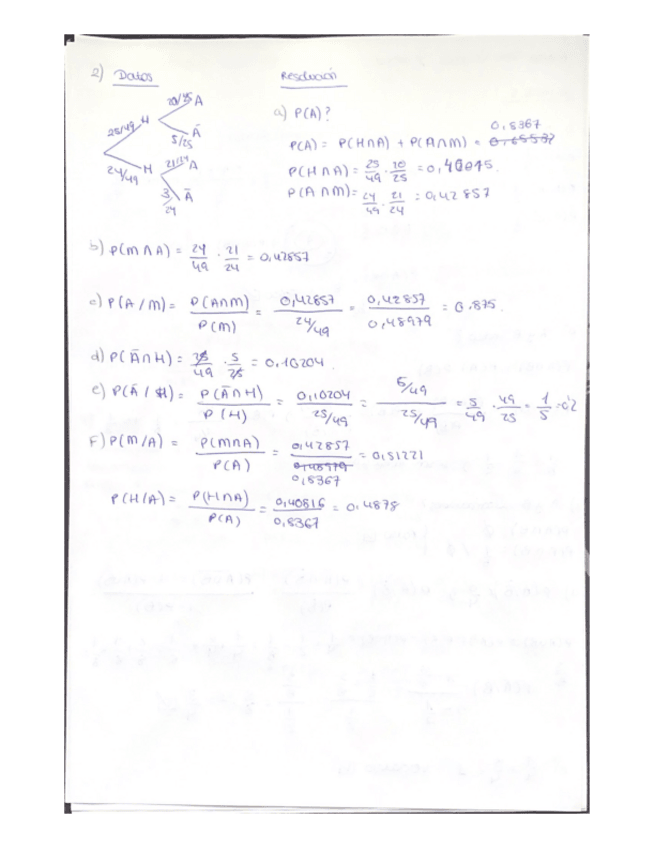 2) Datos
Resolución
25/49 H 20/25 A
5/25 Ā
24/49 M 21/24 A
3/24 Ā
a) P(A)?
P(A) = P(H∩A) + P(A∩M) = 0,8367
P(H∩A) = 25/49 · 20/25 =
P(A∩M) = 24/49 · 21/24 = 0,42857
b) P(M∩A) = 24/49 · 21/24 = 0,42857
c) P(A/M) = P(A∩M)/P(M) = 0,42857/(24/49) = 0,42857/0,48979 = 0.875.
d) P(Ā∩H) = 25/49 · 5/25 = 0,10204.
e) P(Ā/H) = P(Ā∩H)/P(H) = 0,10204/(25/49) = (5/49)/(25/49) = 5/49 · 49/25 = 1/5 = 0'2
F) P(M/A) = P(M∩A)/P(A) = 0,42857/0,8367 = 0,51221
P(H/A) = P(H∩A)/P(A) = 0,40816/0,8367 = 0,4878